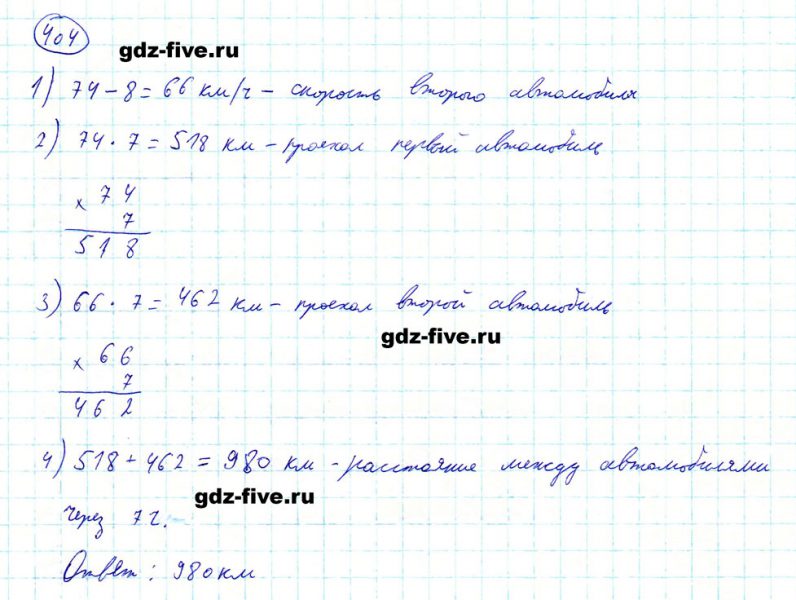 404
gdz-five.ru
1) 74 - 8 = 66 км/ч - скорость второго автомобиля
2) 74 · 7 = 518 км - проехал первый автомобиль
× 74
7
518
3) 66 · 7 = 462 км - проехал второй автомобиль
gdz-five.ru
× 66
7
462
4) 518 + 462 = 980 км - расстояние между автомобилями
gdz-five.ru
через 7 ч.
Ответ: 980 км